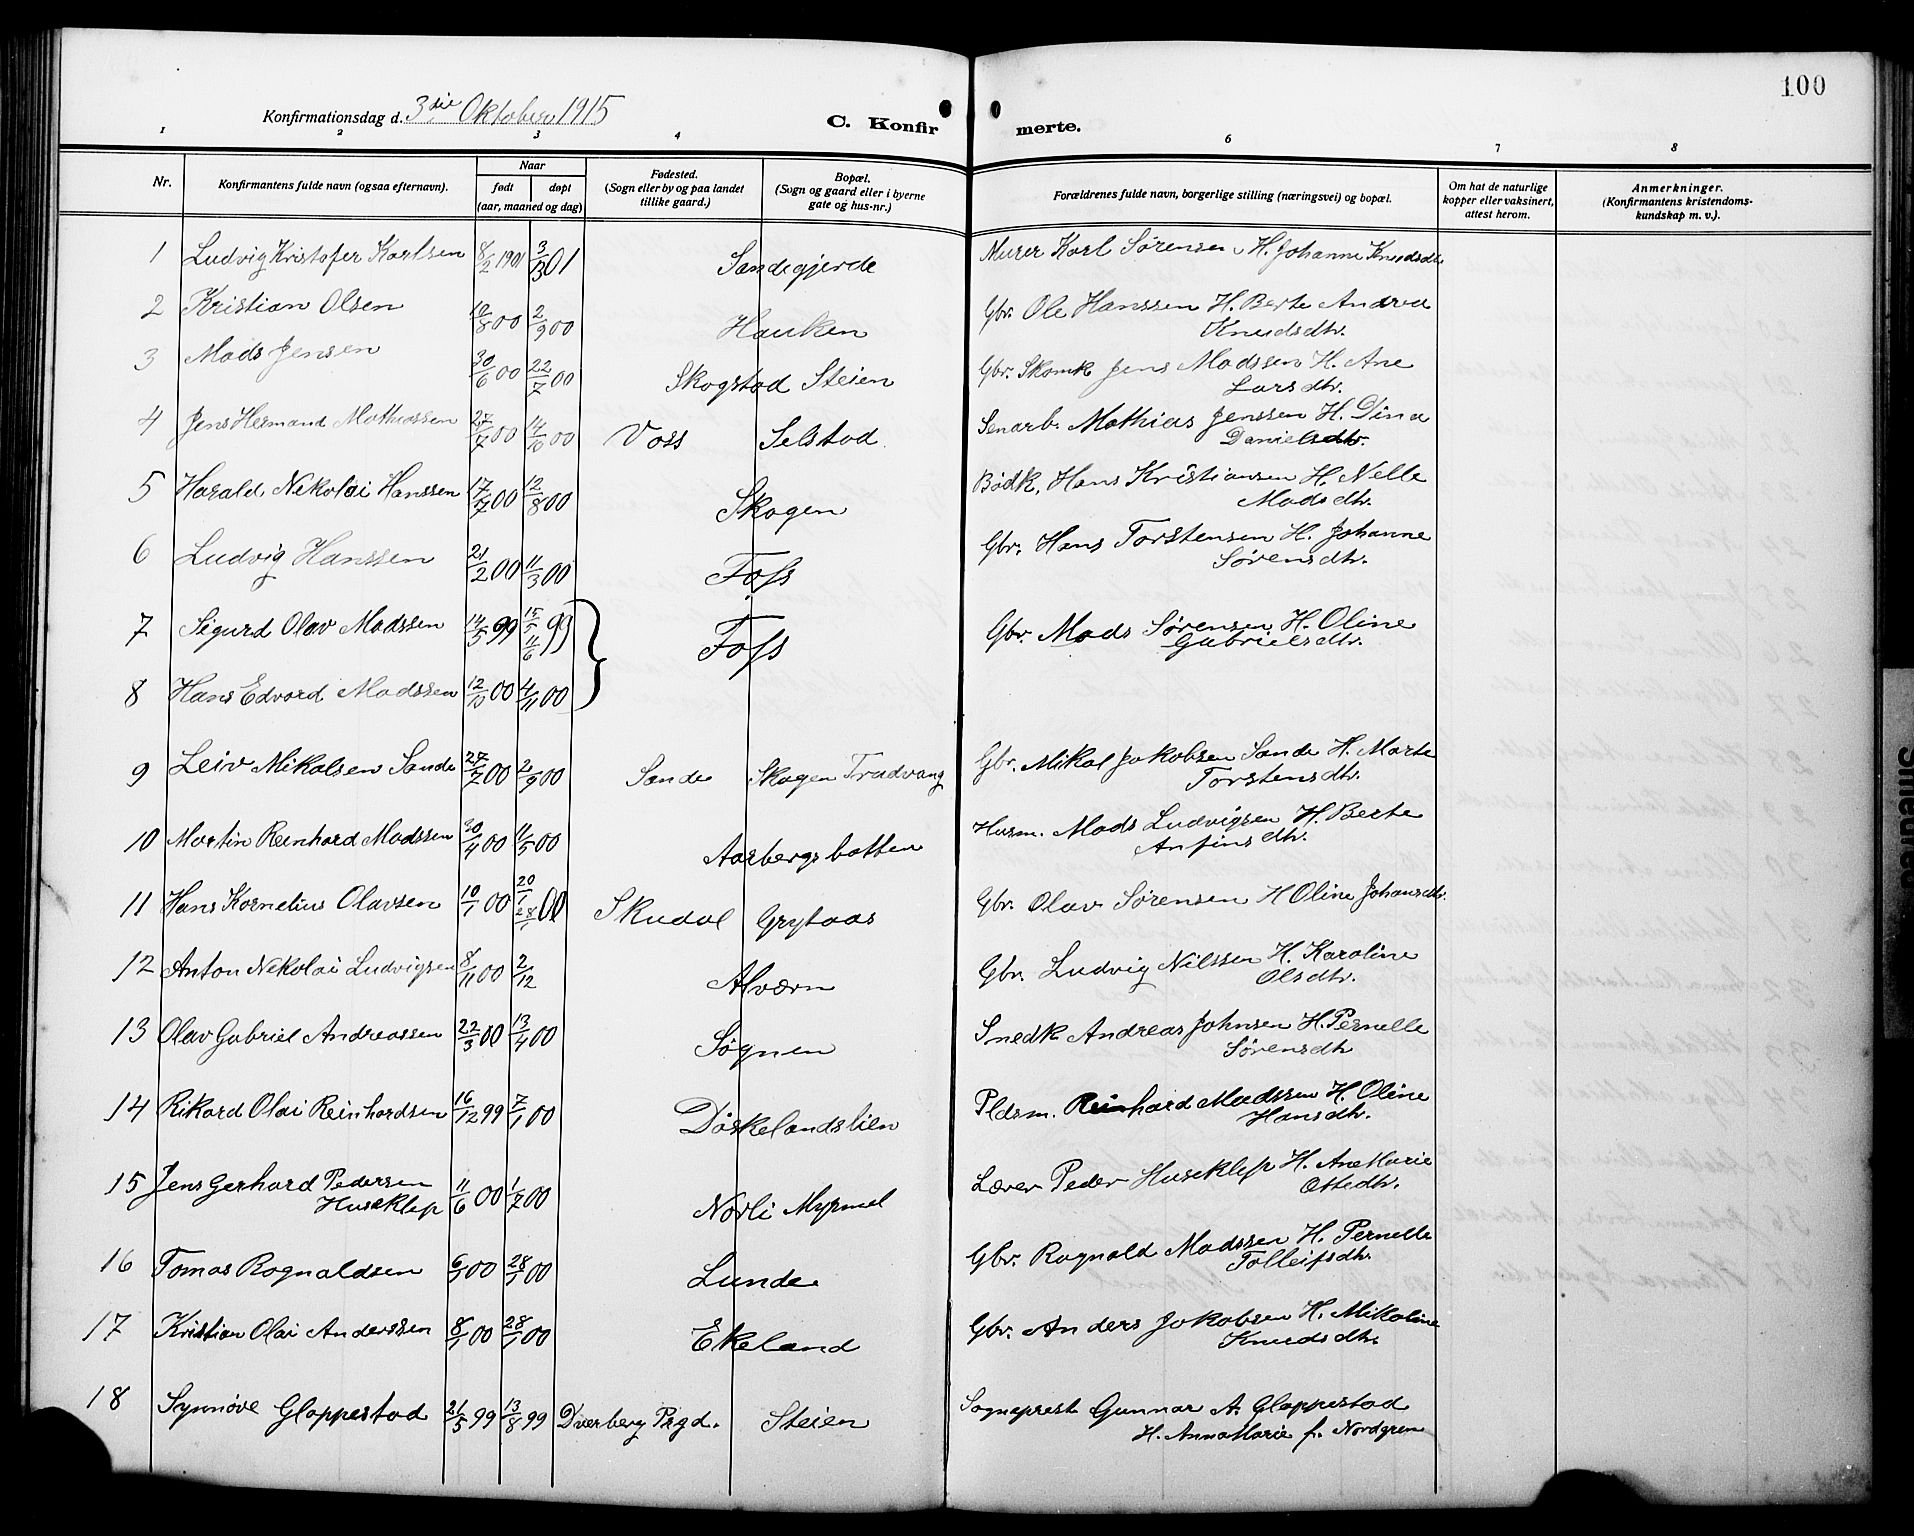 100
Konfirmationsdag d. 3die Oktober 1915
C. Konfirmerte.
1 2 3 4 6 7 8
Nr. Konfirmantens fulde navn (ogsaa efternavn). Naar født døpt (aar, maaned og dag) Fødested. (Sogn eller by og paa landet tillike gaard.) Bopæl. (Sogn og gaard eller i byerne gate og hus-nr.) Forældrenes fulde navn, borgerlige stilling (næringsvei) og bopæl. Om hat de naturlige kopper eller vaksinert, attest herom. Anmerkninger. (Konfirmantens kristendoms-kundskap m. v.).
1 Ludvig Kristofer Karlsen 8/2 1901 3/3 01 Sandegjerde Murer Karl Sørensen H. Johanne Knudsdtr.
2 Kristian Olsen 10/8 00 2/9 00 Hauken Gbr. Ole Hanssen H. Berte Andrea
Knudsdtr.
3 Mads Jensen 30/6 00 22/7 00 Skogstad Steien Gbr. Skomk Jens Madssen H. Ane
Larsdtr.
4 Jens Hermand Mathiassen 27/7 00 14/10 00 Voss Selstad Mathias Jenssen H. Dina
Danielsdtr.
5 Harald Nikolai Hanssen 17/7 00 12/8 00 Skogen Bødk. Hans Kristiansen H. Nelle
Madsdtr.
6 Ludvig Hanssen 21/2 00 11/3 00 Foss Gbr. Hans Torstensen H. Johanne
Sørensdtr.
7 Sigurd Olav Madssen 14/5 99 15/5 11/6 99 Foss Gbr. Mads Sørensen H. Oline
Gabrielsdtr.
8 Hans Edvard Madssen 12/10 00 4/11 00
9 Leiv Mikalsen Sande 27/7 00 2/9 00 Sande Skogen Trudvang Gbr. Mikal Jakobsen Sande H. Marte
Torstensdtr.
10 Martin Reinhard Madssen 30/4 00 11/5 00 Aarbergsbotten Husm. Mads Ludvigsen H. Berte
Anfinsdtr.
11 Hans Kornelius Olavsen 10/1 00 20/1 28/1 00 Skudal Grytaas Gbr. Olav Sørensen H Oline Johansdtr.
12 Anton Nikolai Ludvigsen 8/11 00 2/12 Alværn Gbr. Ludvig Nilssen H. Karoline
Olsdtr.
13 Olav Gabriel Andreassen 22/3 00 13/4 00 Søgnen Snedk Andreas Johnsen H. Pernelle
Sørensdtr
14 Rikard Olai Reinhardsen 16/12 99 7/1 00 Døskelandslien Pldsm. Reinhard Madssen H. Oline
Hansdtr.
15 Jens Gerhard Pedersen 11/6 00 1/7 00 Norli Myrmel Lærer Peder Huseklep H. Ane Marie
Huseklep Ottedtr.
16 Tomas Ragnaldsen 6/1 00 28/1 00 Lunde Gbr. Ragnald Madssen H. Pernelle
Tolleifsdtr.
17 Kristian Olai Anderssen 8/1 00 28/1 00 Ekeland Gbr. Anders Jakobsen H. Mikaline
Knudsdtr.
18 Synnøve Gloppestad 21/5 99 13/8 99 Dverberg Prgd. Steien Sogneprest Gunnar A. Gloppestad
H. Anna Marie f. Nordgren